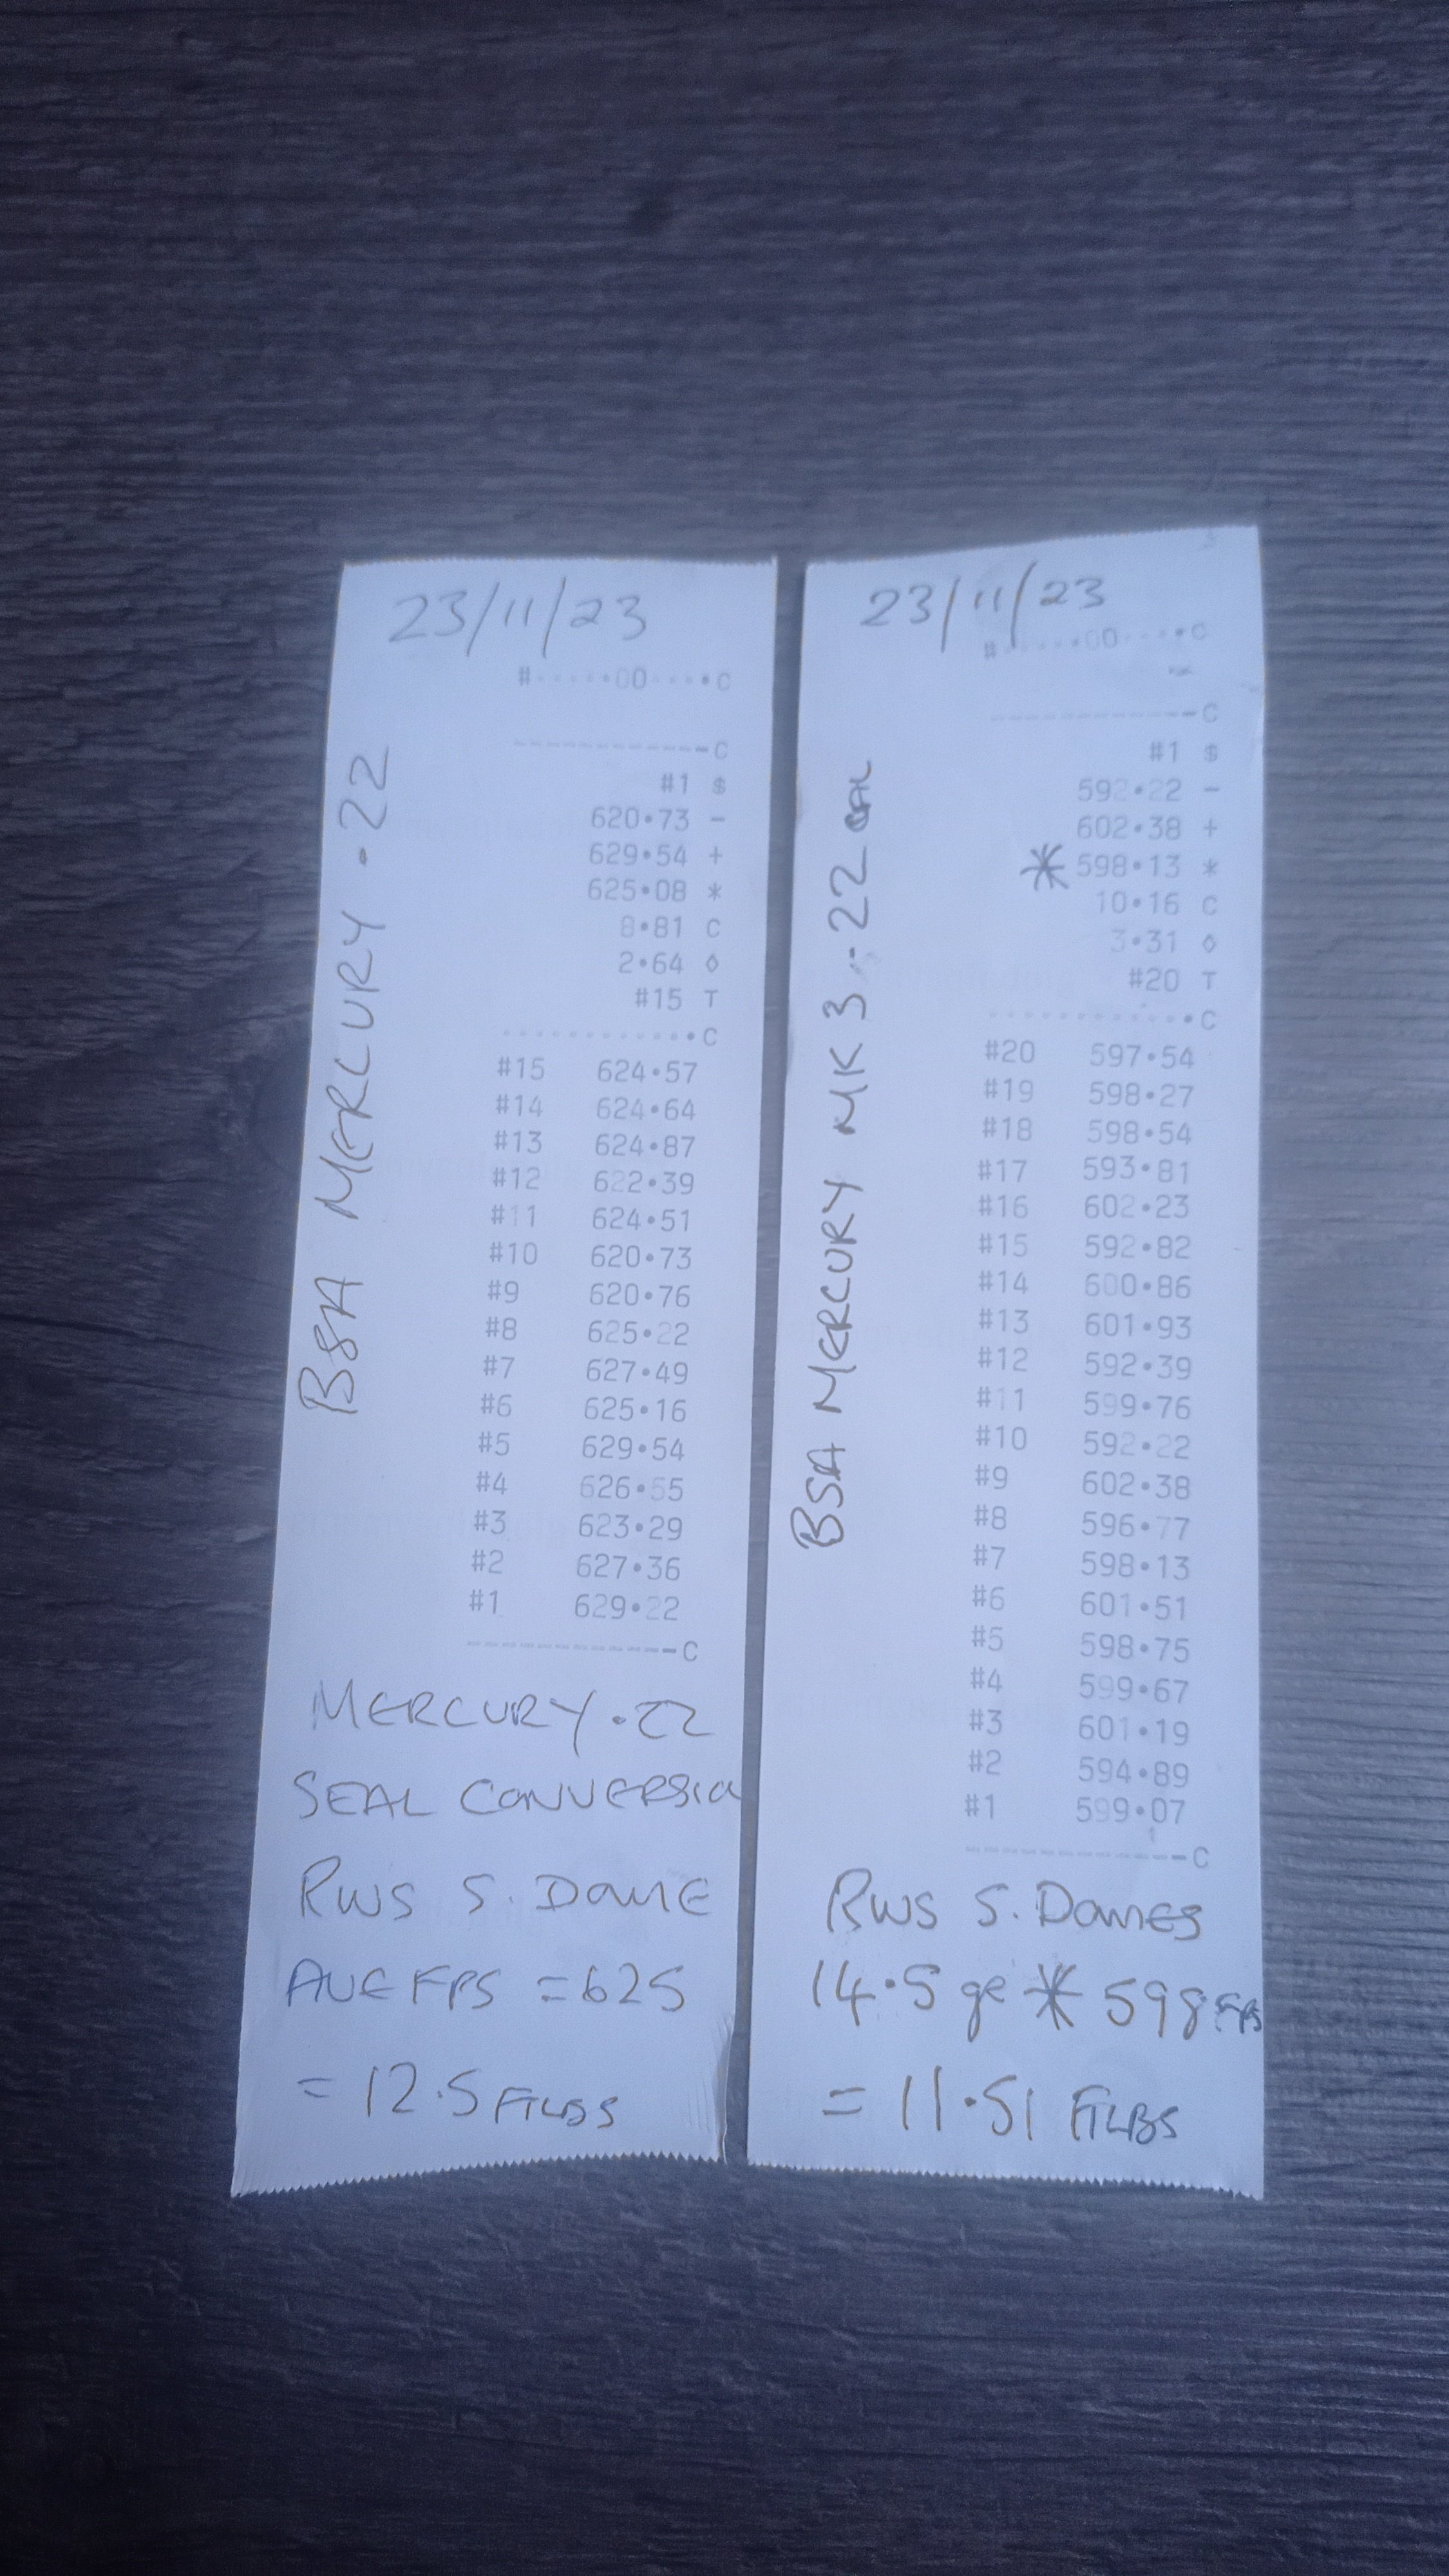 23/11/23
#·····•00····•C
------------C
#1 $
620•73 -
629•54 +
625•08 *
8•81 C
2•64 ◊
#15 T
············•C
#15 624•57
#14 624•64
#13 624•87
#12 622•39
#11 624•51
#10 620•73
#9 620•76
#8 625•22
#7 627•49
#6 625•16
#5 629•54
#4 626•55
#3 623•29
#2 627•36
#1 629•22
------------C
BSA MERCURY .22
MERCURY .22
SEAL CONVERSIO
RWS S. DOME
AVE FPS = 625
= 12.5 FTLBS
23/11/23
#·····•00····•C
------------C
#1 $
592•22 -
602•38 +
* 598•13 *
10•16 C
3•31 ◊
#20 T
············•C
#20 597•54
#19 598•27
#18 598•54
#17 593•81
#16 602•23
#15 592•82
#14 600•86
#13 601•93
#12 592•39
#11 599•76
#10 592•22
#9 602•38
#8 596•77
#7 598•13
#6 601•51
#5 598•75
#4 599•67
#3 601•19
#2 594•89
#1 599•07
------------C
BSA MERCURY MK 3 .22
RWS S. DOMES
14.5 gr * 598 FPS
= 11.51 FTLBS